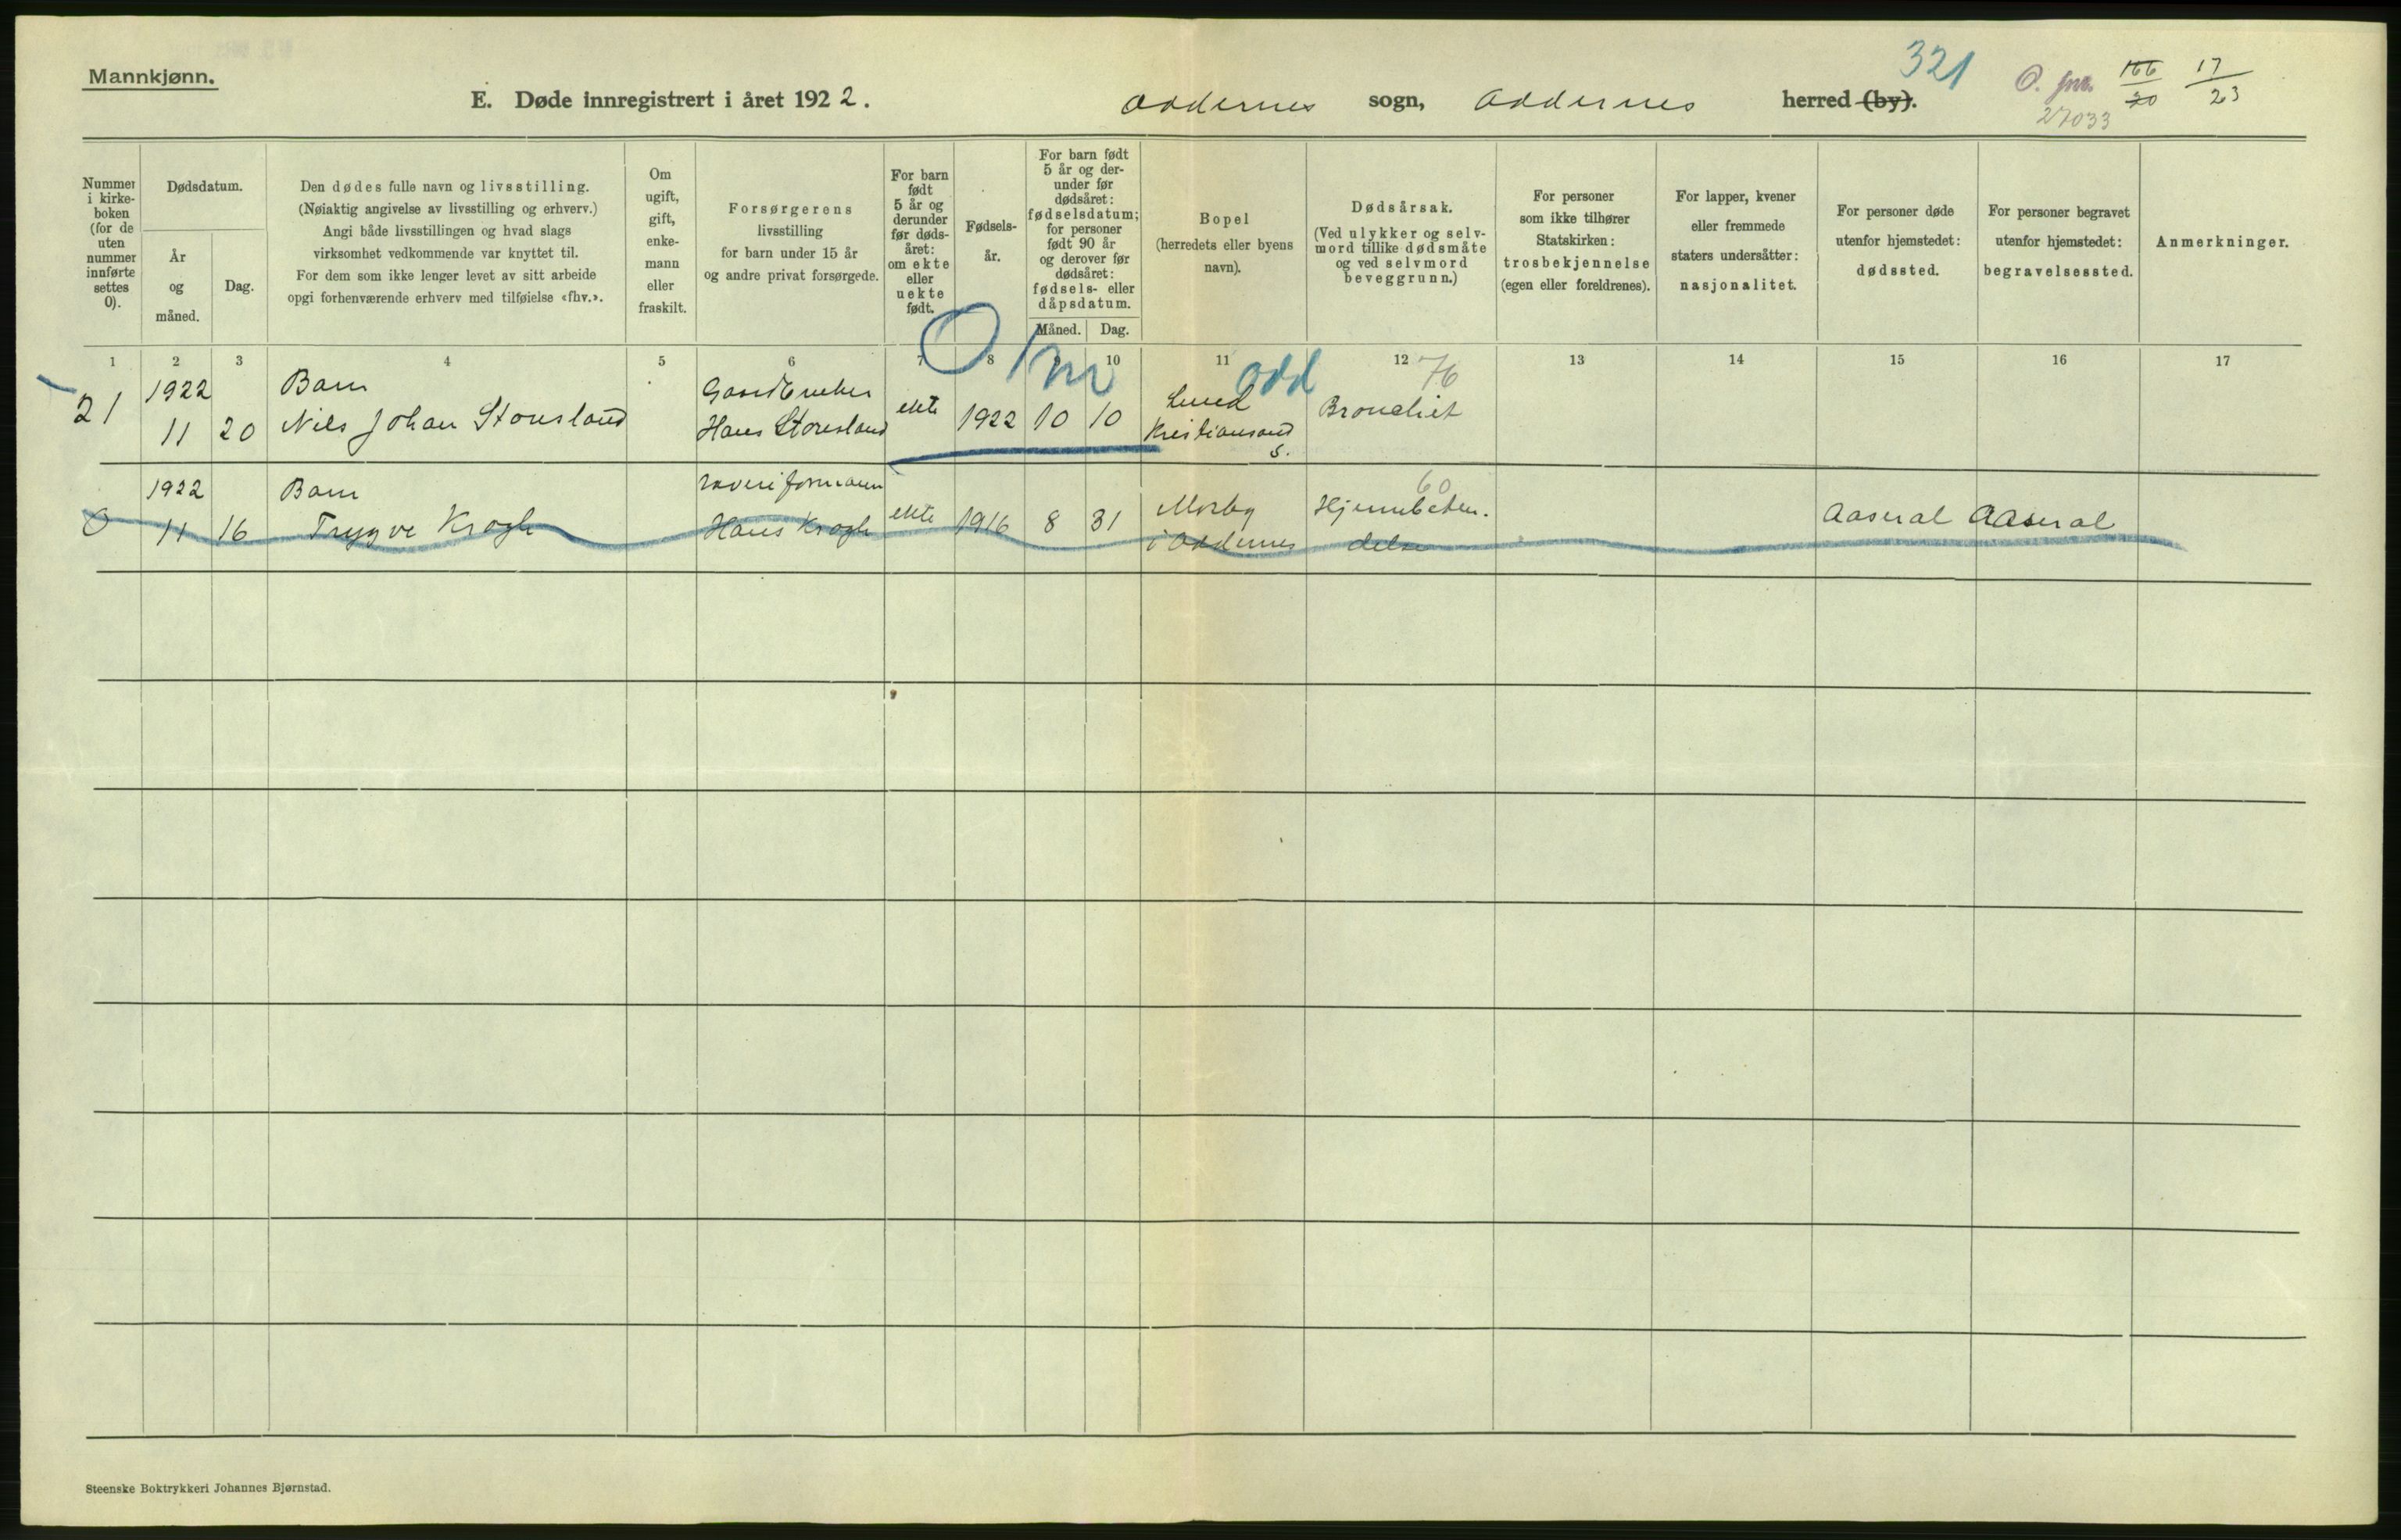 Mannkjønn.
E. Døde innregistrert i året 1922. Oddernes sogn, Oddernes herred (by).
321
166 17
20 23
27033
Nummer i kirkeboken (for de uten nummer innførte settes 0).
Dødsdatum.
År og måned.
Dag.
Den dødes fulle navn og livsstilling.
(Nøiaktig angivelse av livsstilling og erhverv.)
Angi både livsstillingen og hvad slags
virksomhet vedkommende var knyttet til.
For dem som ikke lenger levet av sitt arbeide
opgi forhenværende erhverv med tilføielse «fhv.».
Om ugift, gift, enkemann eller fraskilt.
Forsørgerens
livsstilling
for barn under 15 år
og andre privat forsørgede.
For barn født 5 år og derunder før dødsåret: om ekte eller uekte født.
Fødselsår.
For barn født 5 år og derunder før dødsåret: fødselsdatum; for personer født 90 år og derover før dødsåret: fødsels- eller dåpsdatum.
Måned. Dag.
Bopel
(herredets eller byens
navn).
Dødsårsak.
(Ved ulykker og selvmord tillike dødsmåte
og ved selvmord
beveggrunn.)
For personer
som ikke tilhører
Statskirken:
trosbekjennelse
(egen eller foreldrenes).
For lapper, kvener
eller fremmede
staters undersåtter:
nasjonalitet.
For personer døde
utenfor hjemstedet:
dødssted.
For personer begravet
utenfor hjemstedet:
begravelsessted.
Anmerkninger.
1 2 3 4 5 6 7 8 9 10 11 12 13 14 15 16 17
O/m Odd 76
1922 Barn Gaardbruker Lund
21 11 20 Nils Johan Stousland Hans Stousland ekte 1922 10 10 Kristiansand S. Bronchit
60
1922 Barn Mosby Hjernebeten-
0 11 16 Trygve Krogh Hans Krogh ekte 1916 8 31 i Oddernes delse Aaseral Aaseral
Steenske Boktrykkeri Johannes Bjørnstad.